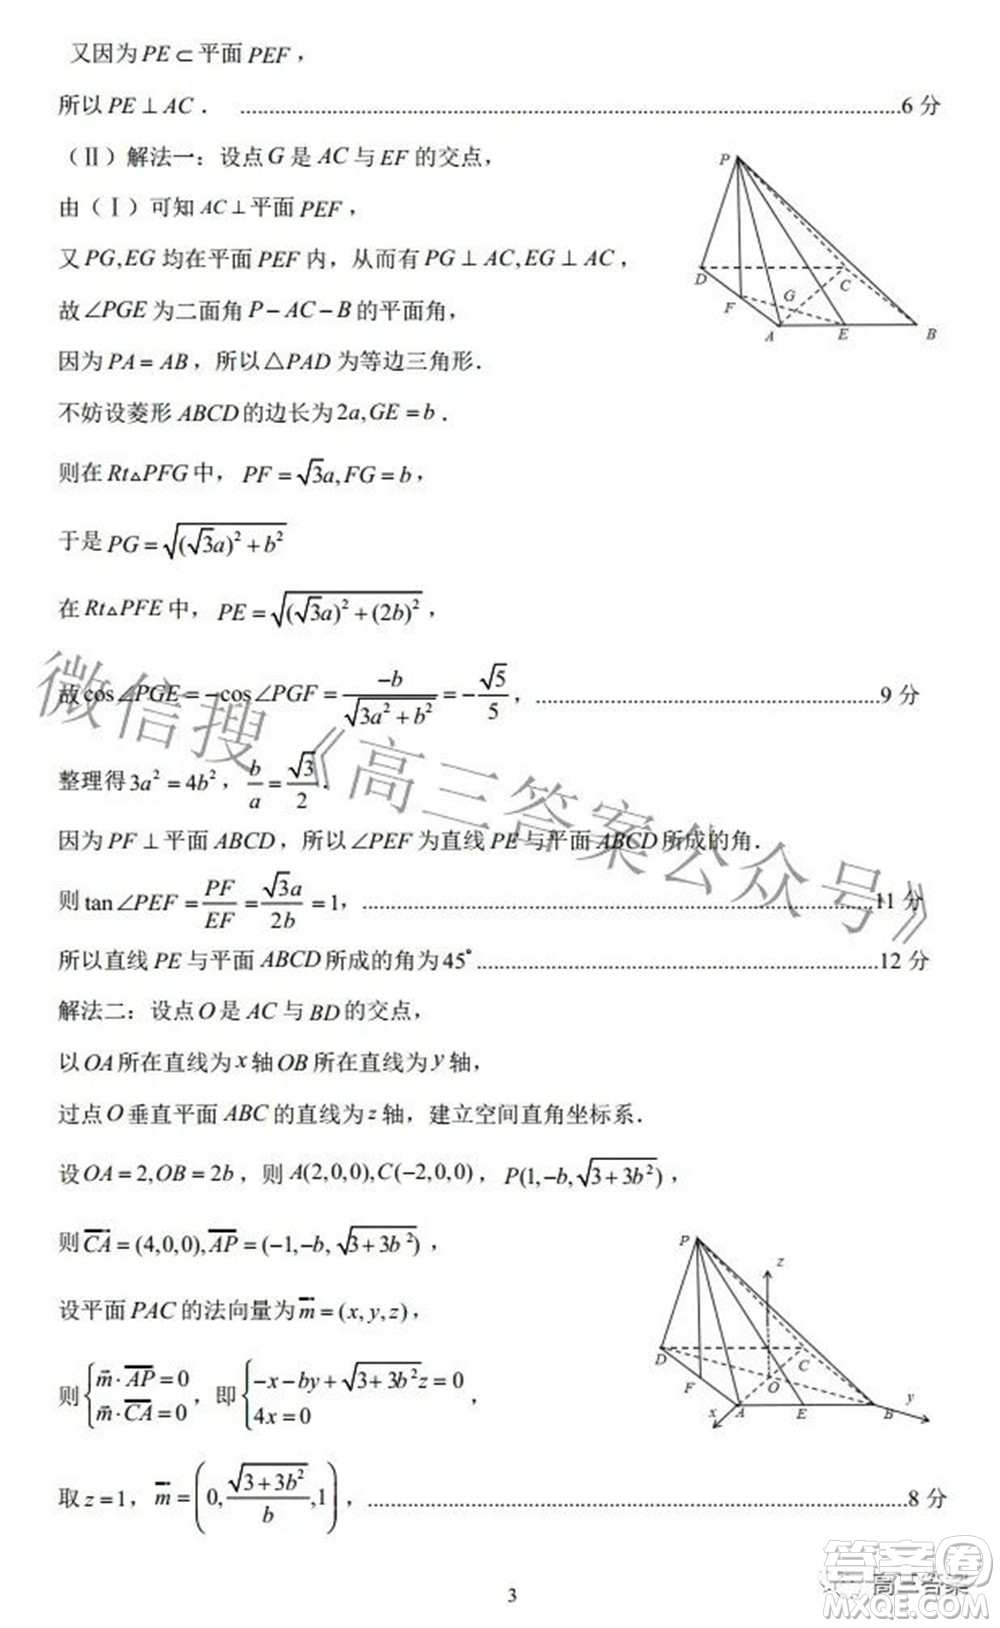 又因为PE⊂平面PEF，
所以PE⊥AC． ……………………………………6分
（Ⅱ）解法一：设点G是AC与EF的交点，
由（Ⅰ）可知AC⊥平面PEF，
又PG,EG均在平面PEF内，从而有PG⊥AC,EG⊥AC，
故∠PGE为二面角P−AC−B的平面角，
因为PA=AB，所以△PAD为等边三角形．
不妨设菱形ABCD的边长为2a,GE=b．
P
D
C
G
F
A
E
B
则在Rt△PFG中，PF=√3a,FG=b，
于是PG=√((√3a)²+b²)
在Rt△PFE中，PE=√((√3a)²+(2b)²)，
故cos∠PGE=−cos∠PGF=−b/√(3a²+b²)=−√5/5，……………………………………9分
整理得3a²=4b²，b/a=√3/2．
因为PF⊥平面ABCD，所以∠PEF为直线PE与平面ABCD所成的角．
则tan∠PEF=PF/EF=√3a/2b=1，……………………………………11分
所以直线PE与平面ABCD所成的角为45°……………………………………12分
解法二：设点O是AC与BD的交点，
以OA所在直线为x轴OB所在直线为y轴，
过点O垂直平面ABC的直线为z轴，建立空间直角坐标系．
设OA=2,OB=2b，则A(2,0,0),C(−2,0,0)，P(1,−b,√(3+3b²))，
则CA=(4,0,0),AP=(−1,−b,√(3+3b²))，
设平面PAC的法向量为m=(x,y,z)，
则{m·AP=0 m·CA=0，即{−x−by+√(3+3b²)z=0 4x=0，
P
z
D
C
F
O
x
A
E
B
y
取z=1，m=(0,√(3+3b²)/b,1)，……………………………………8分
3
微信搜《高三答案公众号》
答案圈
高三答案
MXQE.COM